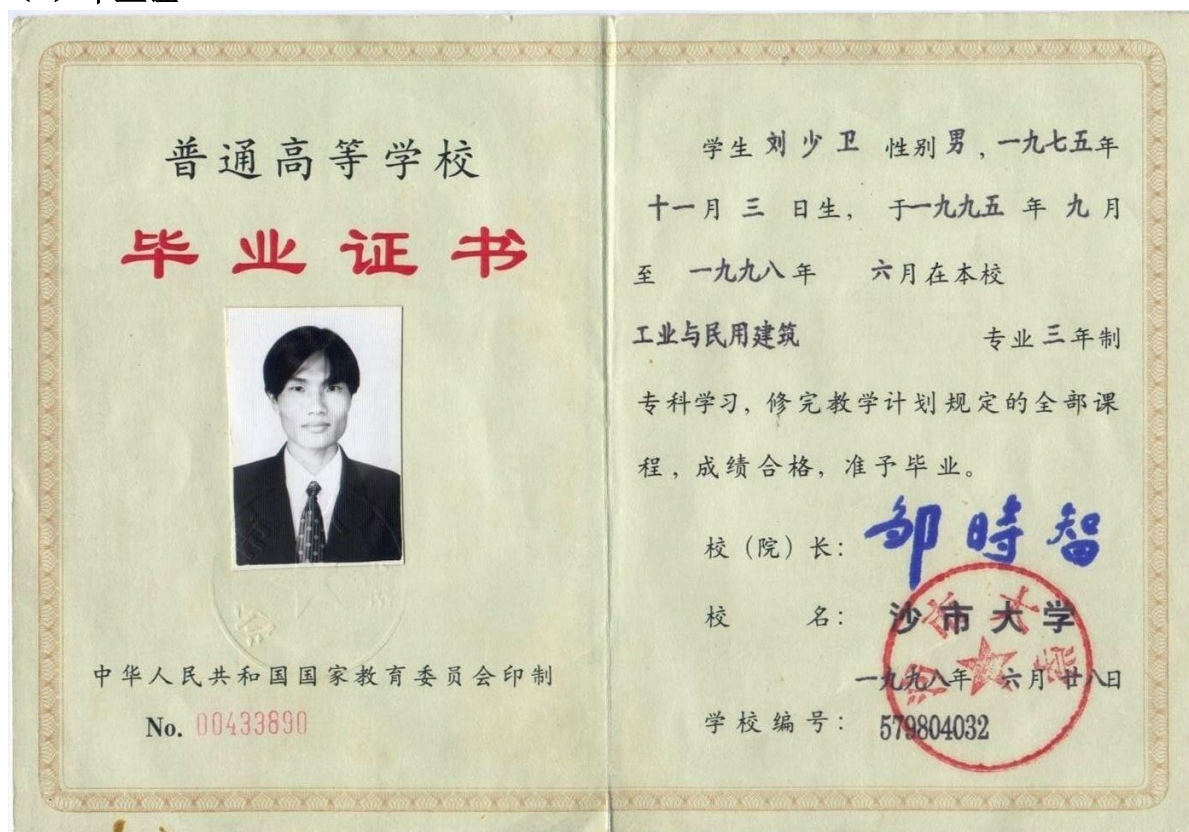 普通高等学校
毕业证书
中华人民共和国国家教育委员会印制
No. 00433890
学生 刘少卫 性别 男，一九七五年
十一月 三 日生， 于一九九五 年 九 月
至 一九九八 年 六月在本校
工业与民用建筑 专业 三 年制
专科学习，修完教学计划规定的全部课
程，成绩合格，准予毕业。
校（院）长： 邹時智
校 名： 沙市大学
一九九八年 六月 廿八日
学校编号： 579804032